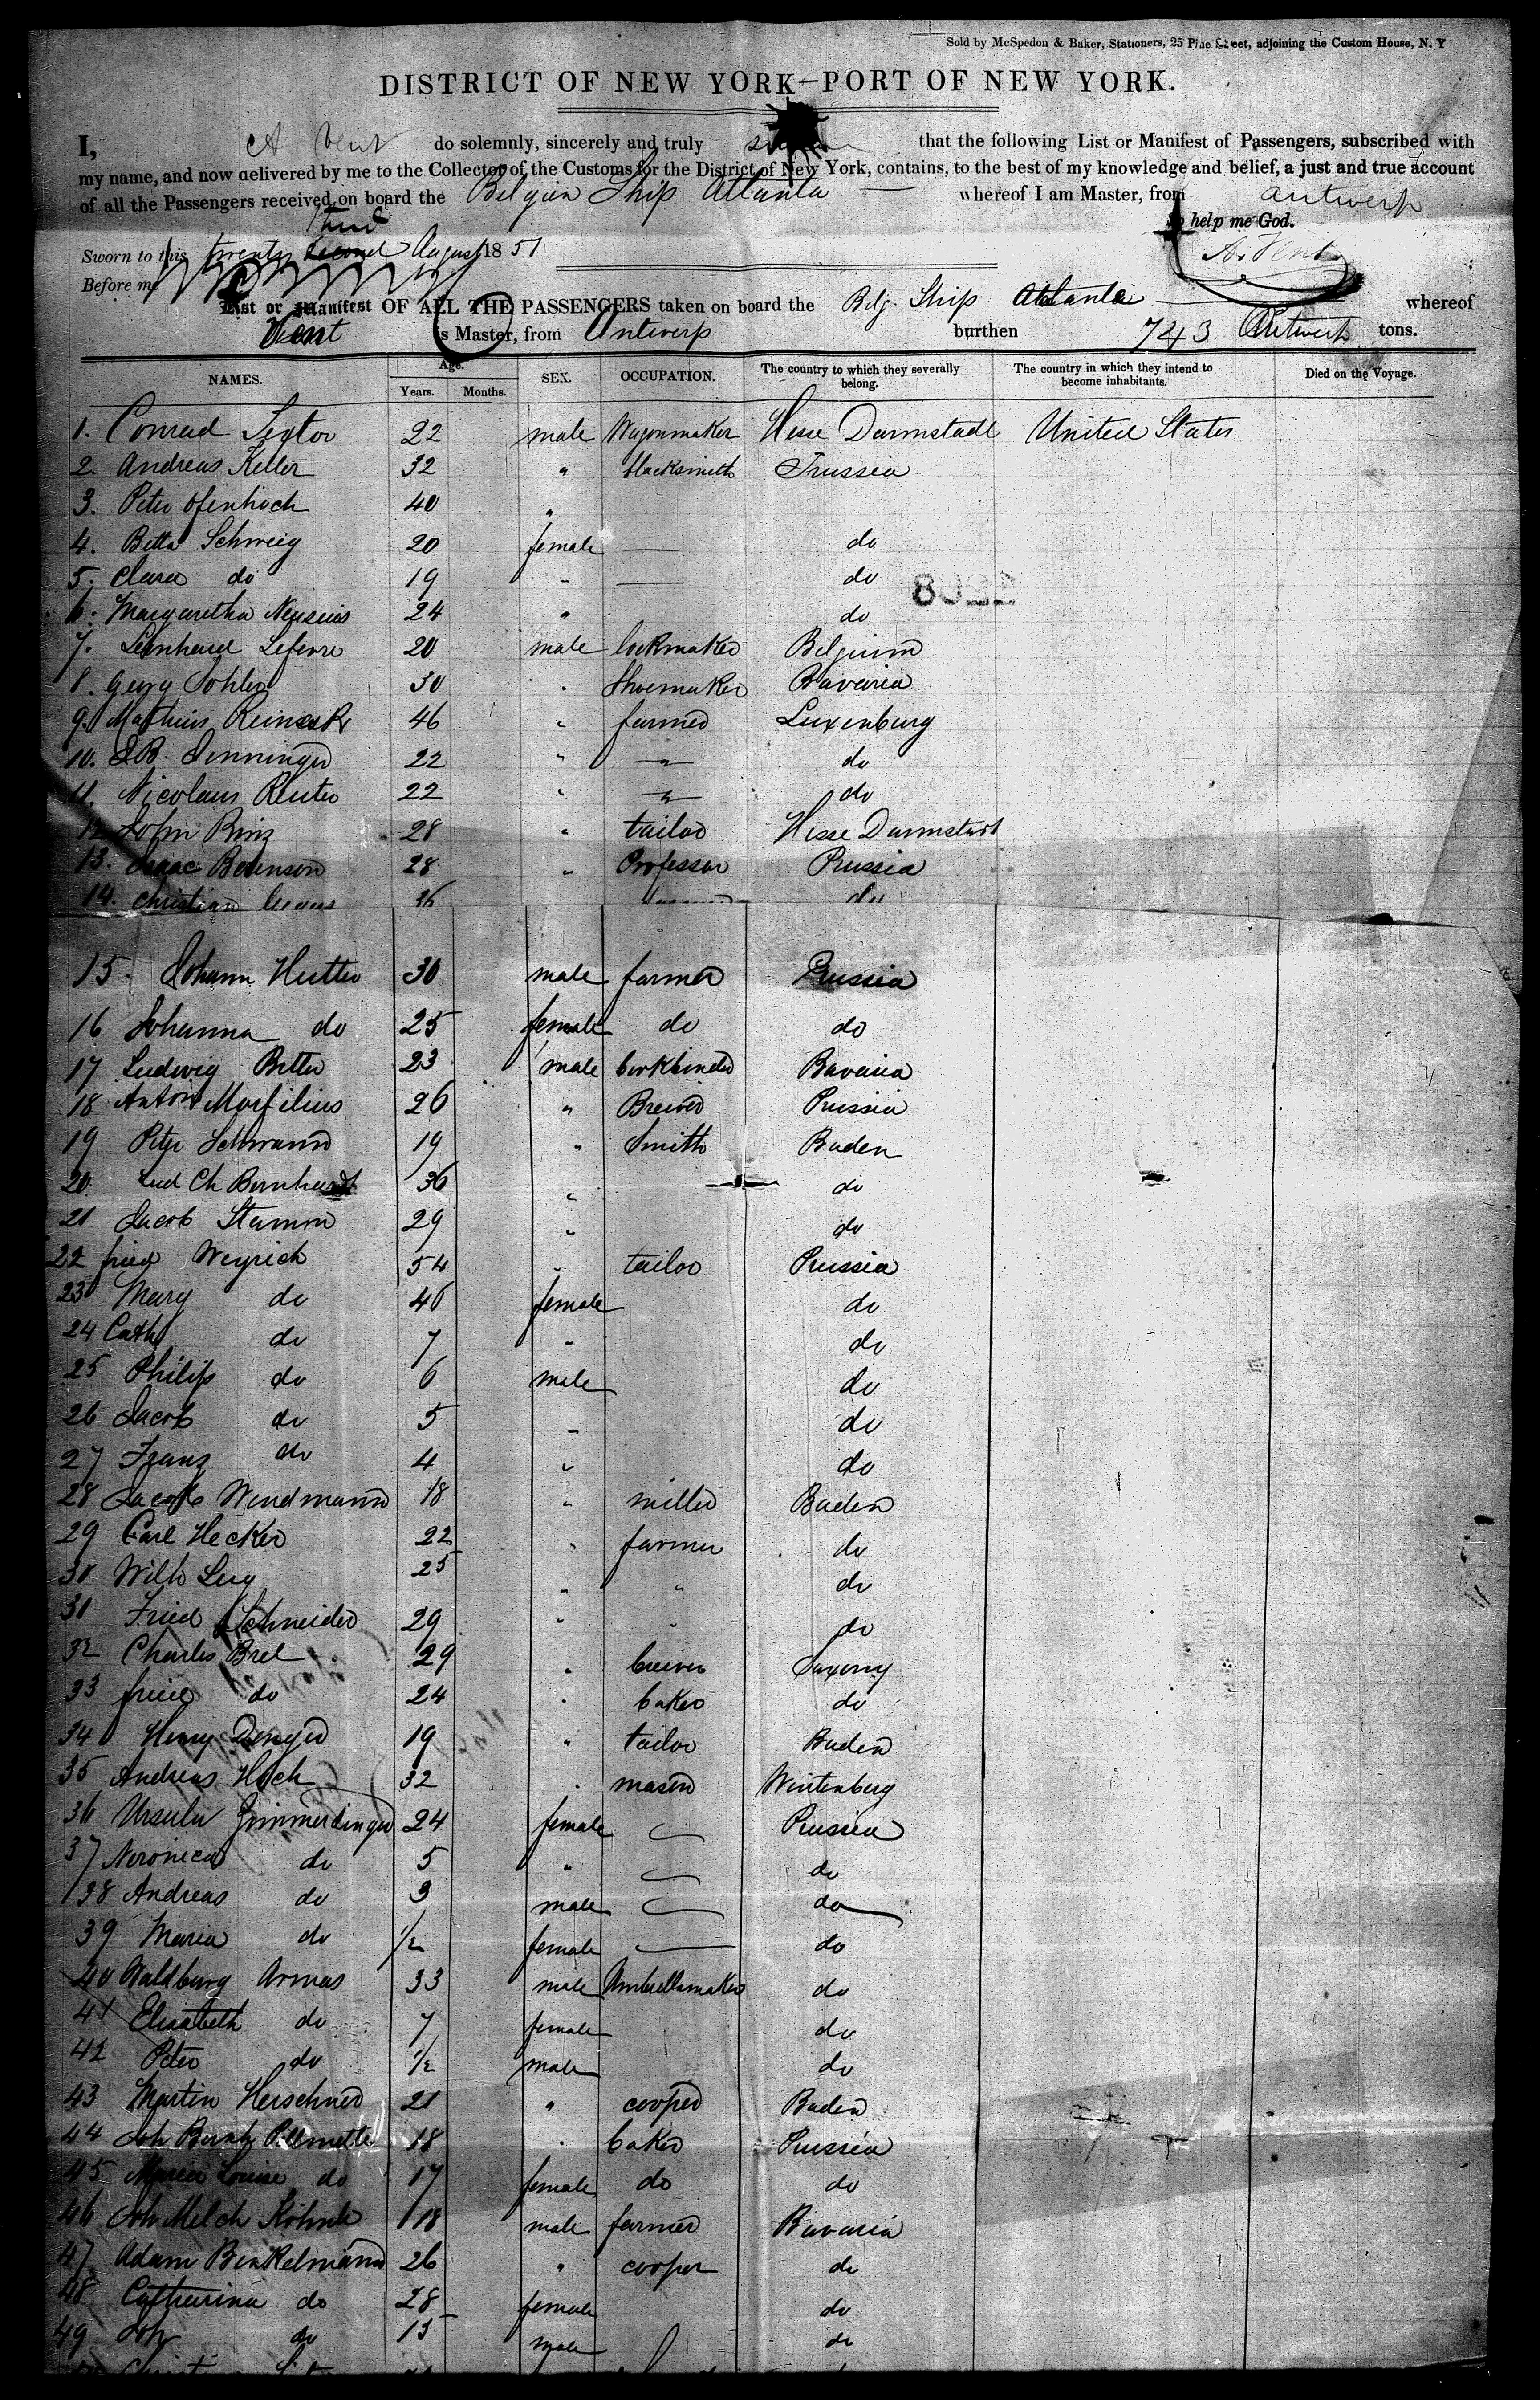 Sold by McSpedon & Baker, Stationers, 25 Pine Street, adjoining the Custom House, N. Y
DISTRICT OF NEW YORK—PORT OF NEW YORK.
I, A Vent do solemnly, sincerely and truly that the following List or Manifest of Passengers, subscribed with
my name, and now delivered by me to the Collector of the Customs for the District of New York, contains, to the best of my knowledge and belief, a just and true account
of all the Passengers received on board the Belgian Ship Atlanta whereof I am Master, from Antwerp
So help me God.
Sworn to this twenty second third August 1851
A. Vent
Before me
List or Manifest OF ALL THE PASSENGERS taken on board the Belg. Ship Atlanta whereof
Vent is Master, from Antwerp burthen 743 Antwerp tons.
NAMES. Age. Years. Months. SEX. OCCUPATION. The country to which they severally belong. The country in which they intend to become inhabitants. Died on the Voyage.
1. Conrad 22 male Wagonmaker Hesse Darmstadt United States
2. Andreas Keller 32 " blacksmith Prussia
3. Peter 40 "
4. Betta Schweig 20 female — do
5. Clara do 19 " — do
8022
6. Margaretha 24 " do
7. Leonhard Lefevre 20 male lockmaker Belgium
8. Georg Kohler 30 " Shoemaker Bavaria
9. Mathias 46 " farmer Luxenburg
10. 22 " — " — do
11. Nicolaus Reuter 22 " — " — do
12 John Rinz 28 " tailor Hesse Darmstadt
13. Isaac Berenson 28 " Professor Prussia
14. Christian 36 do
15. Johann Hutter 30 male farmer Prussia
16 Johanna do 25 female do do
17 Ludwig Ritter 23 male bookbinder Bavaria
18 Anton Marfilius 26 " Brewer Prussia
19 Peter Schwann 19 " Smith Baden
20. Lud Ch Bernhardt 36 " do
21 Jacob Stamm 29 " do
22 fried Weyrich 54 " tailor Prussia
23 Mary do 46 female do
24 Cath do 7 " do
25 Philip do 6 male do
26 Jacob do 5 " do
27 Franz do 4 " do
28 Jacob Wendmann 18 " miller Baden
29 Carl Hecker 22 " farmer do
30 Wilh 25 " " do
31 Fried Schneider 29 " " do
32 Charles Brel 29 " brewer Saxony
33 fried do 24 " baker do
34 Henry 19 " tailor Baden
35 Andreas Hoch 32 " mason Wirtenberg
36 Ursula Zimmerdinger 24 female Prussia
37 Veronica do 5 " do
38 Andreas do 3 male do
39 Maria do 1/2 female — do
40 Waldburg Armas 33 male Umbrellamaker do
41 Elisabeth do 7 female do
42 Peter do 1/2 male do
43 Martin Herschner 21 " cooper Baden
44 Joh 18 " baker Prussia
45 Maria Louise do 17 female do do
46 Joh Melch 18 male farmer Bavaria
47 Adam Binkelmann 26 " cooper do
48 Catharina do 28 female do
49 Joh do 15 male do